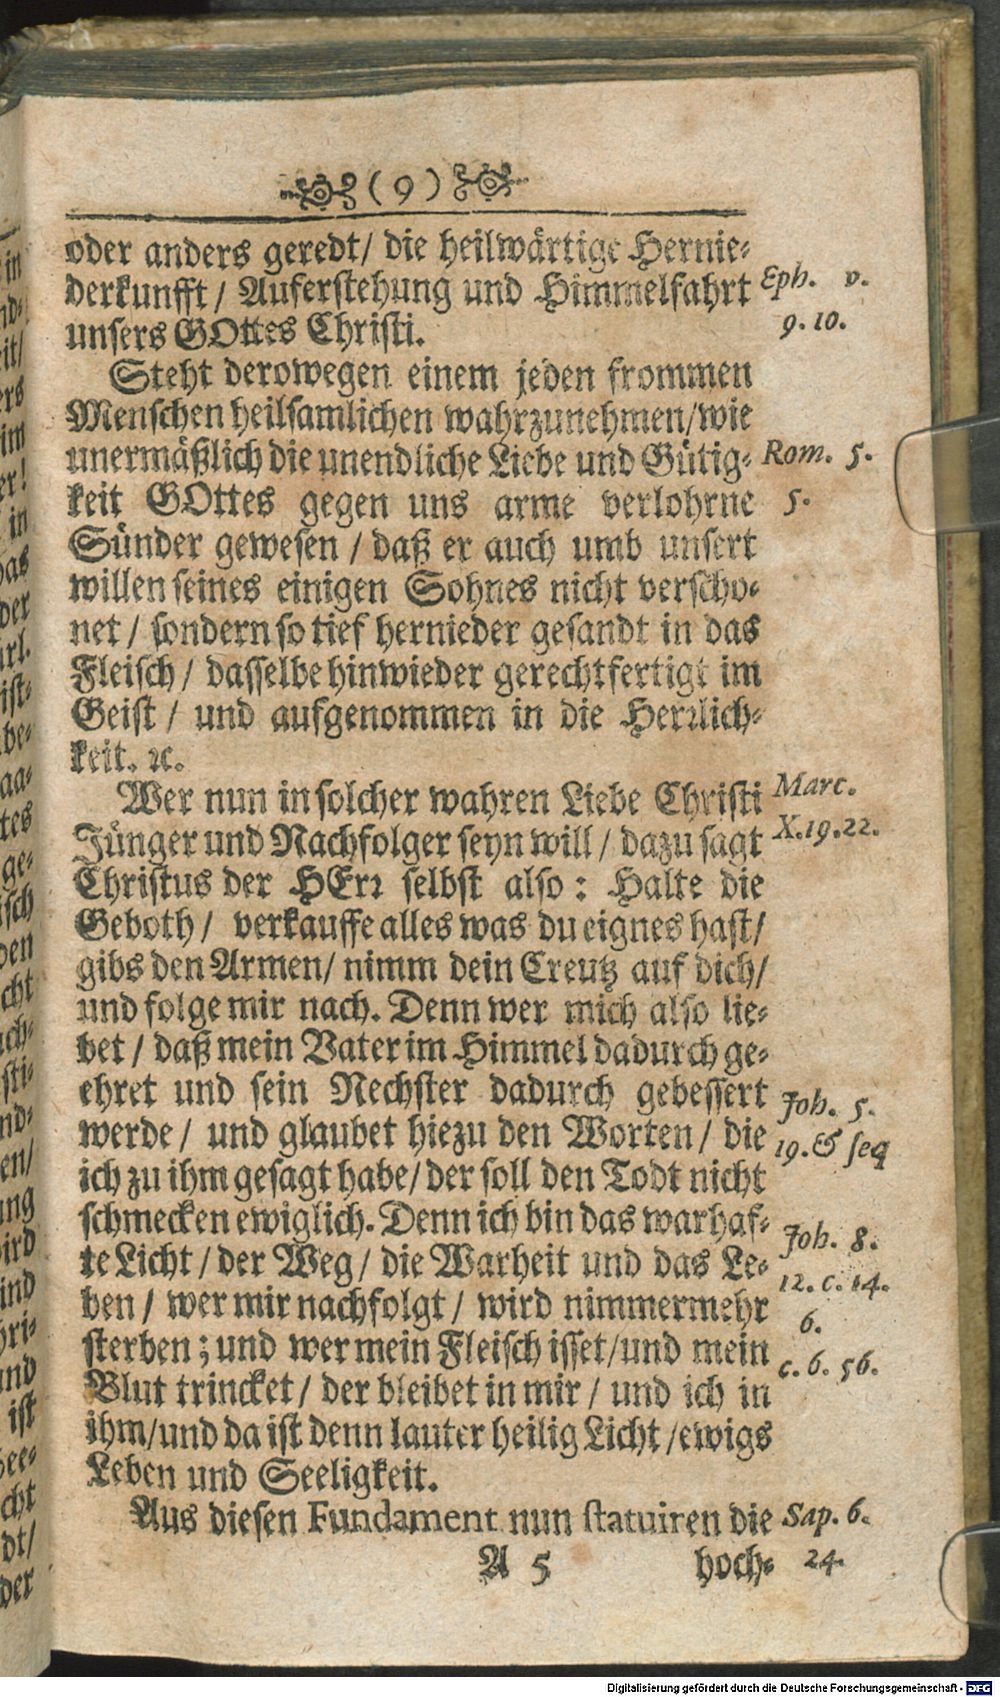 (9)
oder anders geredt/ die heilwärtige Hernie-
derkunfft/ Auferstehung und Himmelfahrt
unsers GOttes Christi.
Eph. v.
9. 10.
Steht derowegen einem jeden frommen
Menschen heilsamlichen wahrzunehmen/ wie
unermäßlich die unendliche Liebe und Gütig-
keit GOttes gegen uns arme verlohrne
Rom. 5.
5.
Sünder gewesen/ daß er auch umb unsert
willen seines einigen Sohnes nicht verscho-
net/ sondern so tief hernieder gesandt in das
Fleisch/ dasselbe hinwieder gerechtfertigt im
Geist/ und aufgenommen in die Herrlich-
keit. ꝛc.
Wer nun in solcher wahren Liebe Christi
Jünger und Nachfolger seyn will/ dazu sagt
Marc.
X. 19. 22.
Christus der HErr selbst also: Halte die
Geboth/ verkauffe alles was du eignes hast/
gibs den Armen/ nimm dein Creutz auf dich/
und folge mir nach. Denn wer mich also lie-
bet/ daß mein Vater im Himmel dadurch ge-
ehret und sein Nechster dadurch gebessert
werde/ und glaubet hiezu den Worten/ die
Joh. 5.
19. & seq
ich zu ihm gesagt habe/ der soll den Todt nicht
schmecken ewiglich. Denn ich bin das warhaf-
te Licht/ der Weg/ die Warheit und das Le-
ben/ wer mir nachfolgt/ wird nimmermehr
Joh. 8.
12. c. 14.
6.
sterben; und wer mein Fleisch isset/ und mein
Blut trincket/ der bleibet in mir/ und ich in
c. 6. 56.
ihm/ und da ist denn lauter heilig Licht/ ewigs
Leben und Seeligkeit.
Aus diesen Fundament nun statuiren die
Sap. 6.
24.
A 5
hoch-
Digitalisierung gefördert durch die Deutsche Forschungsgemeinschaft - DFG